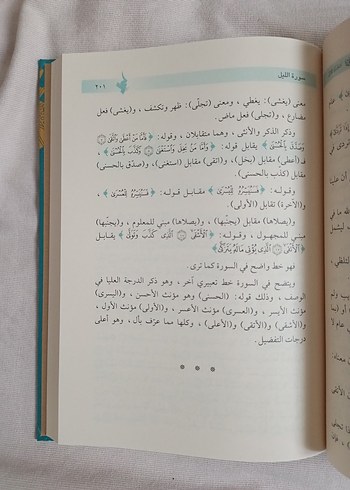 سورة الليل
٢٠١
معنى (يغشى): يغطي، ومعنى (تجلّى): ظهر وتكشف، و(يغشى) فعل
مضارع، و(تجلى) فعل ماض.
وذكر الذكر والأنثى، وهما متقابلان، وقوله: ﴿فَأَمَّا مَنْ أَعْطَىٰ وَاتَّقَىٰ
وَصَدَّقَ بِالْحُسْنَىٰ﴾ يقابل قوله: ﴿وَأَمَّا مَنْ بَخِلَ وَاسْتَغْنَىٰ وَكَذَّبَ بِالْحُسْنَىٰ﴾،
فـ(أعطى) مقابل (بخل)، و(اتقى) مقابل (استغنى)، و(صدّق بالحسنى)
مقابل (كذب بالحسنى).
وقوله: ﴿فَسَنُيَسِّرُهُ لِلْيُسْرَىٰ﴾ مقابل قوله: ﴿فَسَنُيَسِّرُهُ لِلْعُسْرَىٰ﴾،
و(الآخرة) تقابل (الأولى).
و(يصلاها) مقابل (يجنّبها)، و(يصلاها) مبني للمعلوم، و(يجنّبها)
مبني للمجهول، وقوله: ﴿الْأَشْقَى الَّذِي كَذَّبَ وَتَوَلَّىٰ﴾ يقابل
﴿الْأَتْقَى الَّذِي يُؤْتِي مَالَهُ يَتَزَكَّىٰ﴾
فهو خط واضح في السورة كما ترى.
ويتضح في السورة خط تعبيري آخر، وهو ذكر الدرجة العليا في
الوصف، وذلك قوله: (الحسنى) وهو مؤنث الأحسن، و(اليسرى)
مؤنث الأيسر، و(العسرى) مؤنث الأعسر، و(الأولى) مؤنث الأول،
و(الأشقى) و(الأتقى) و(الأعلى)، وكلها مما عرّف بأل، وهو أعلى
درجات التفضيل.
* * *